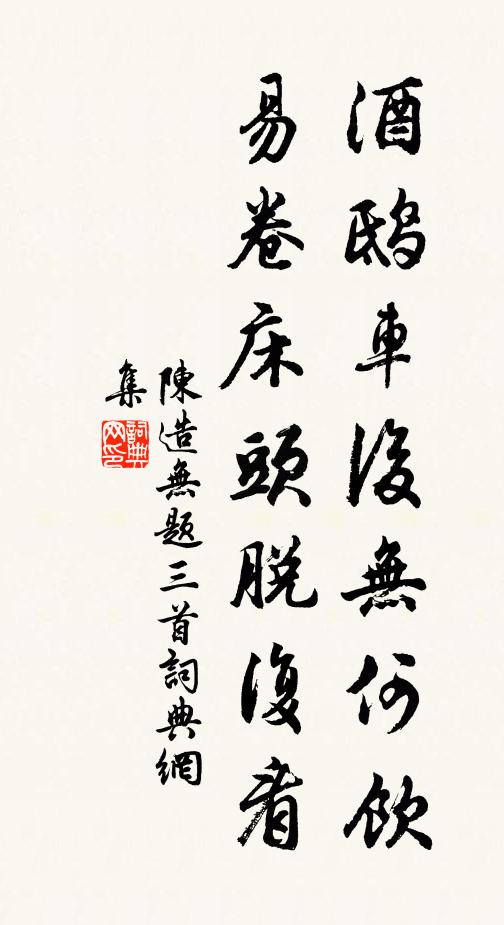 酒鴟車後無何飲
易卷床頭脱復看
陳造無題三首詞典網
集
詞典网印